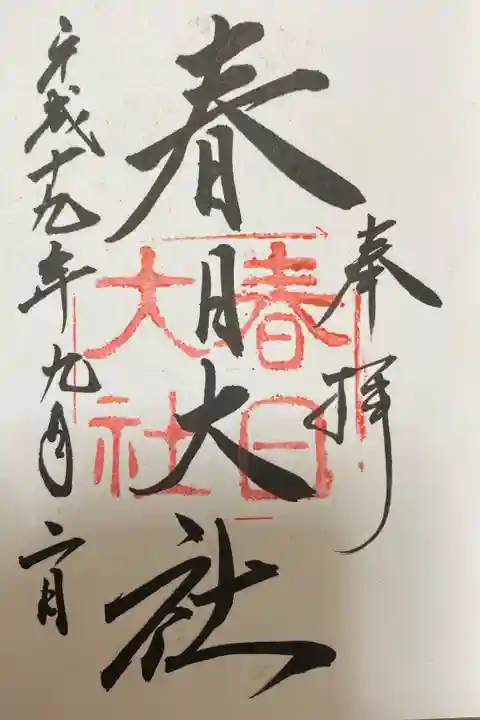 奉拝
春日大社
平成十九年九月二日
春日
大社